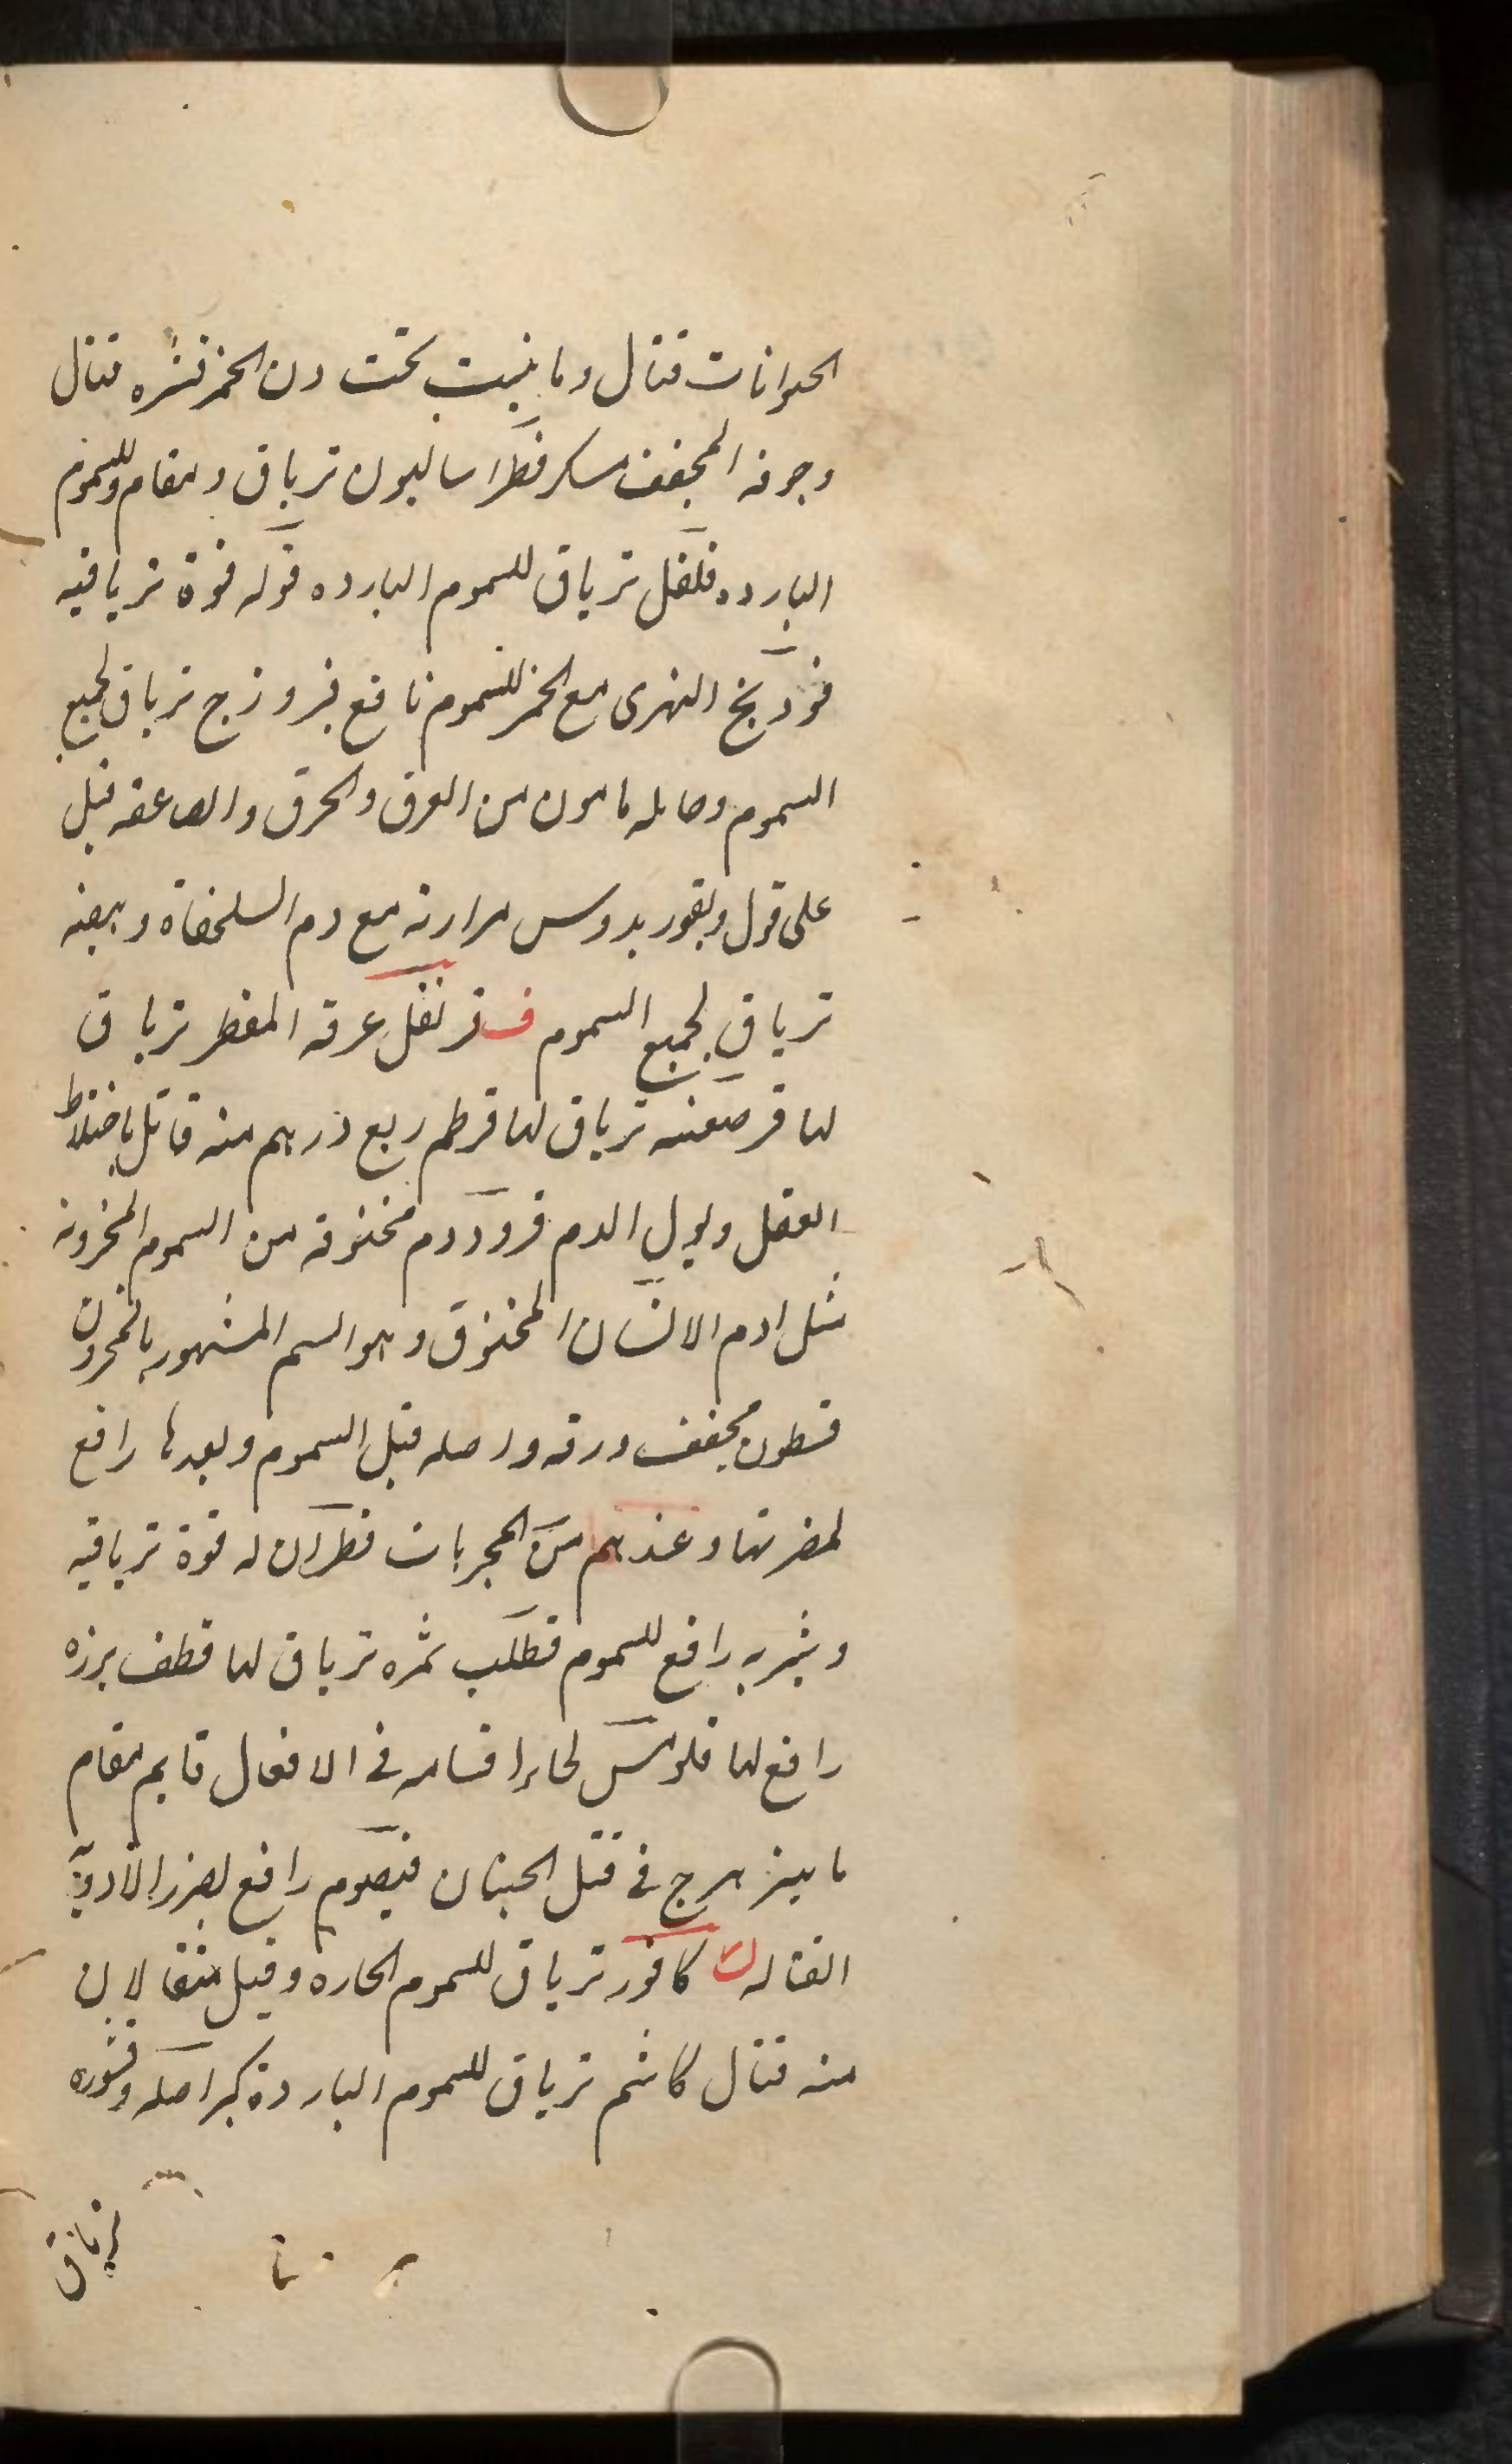 الحيوانات قتال وما ينبت تحت دن الخمر قشره قتال
وجرفه المجفف مسكر فطراساليون ترياق ومقاوم للسموم
البارده فلفل ترياق للسموم البارده قوله قوة ترياقيه
فودنج النهرى مع الخمر للسموم نافع فيروزج ترياق لجميع
السموم وحامله مامون من الغرق والحرق والصاعقه قيل
على قول مرارته مع دم السلحفاة وبيضه
ترياق لجميع السموم ف قرنفل عرقه المقطر ترياق
لها قرصعنه ترياق لها قرطم ربع درهم منه قاتل باختلاط
العقل وبول الدم قرد دم مخنوقه من السموم المخزونه
مثل ادم الانسان المخنوق وهو السم المشهور بالمخزون
قسطون مجفف ورقه واصله قبل السموم وبعدها رافع
لمضرتها وعندهم من المجربات قطران له قوة ترياقيه
وشربه رافع للسموم قطلب ثمره ترياق لها قطف بزره
رافع لها قلومس لحاء اقسامه فى الافعال قايم مقام
ماهيزهرج فى قتل الحيتان قيصوم رافع لضرر الادوية
القتاله ك كافور ترياق للسموم الحاره وقيل مثقالان
منه قتال كاشم ترياق للسموم الباردة كبر اصله وقشوره
ترياق